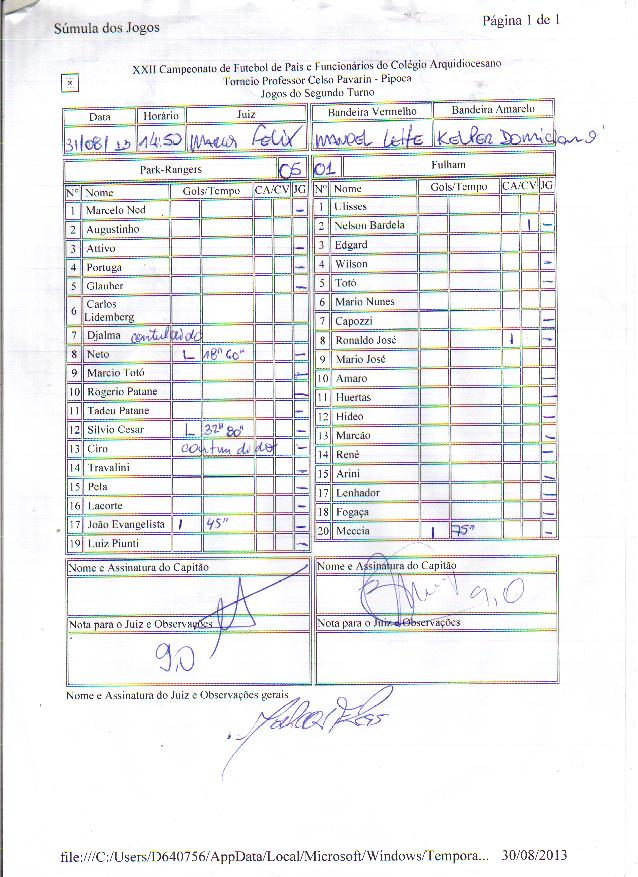 Súmula dos Jogos
Página 1 de 1
XXII Campeonato de Futebol de Pais e Funcionários do Colégio Arquidiocesano
Torneio Professor Celso Pavarin - Pipoca
Jogos do Segundo Turno
Data Horário Juiz Bandeira Vermelho Bandeira Amarelo
31/08/13 14:50 Felix MANOEL LEITE
Park-Rangers 05 01 Fulham
Nº Nome Gols/Tempo CA/CV JG Nº Nome Gols/Tempo CA/CV JG
1 Marcelo Ned – 1 Ulisses
2 Augustinho 2 Nelson Bardela | –
3 Attivo – 3 Edgard
4 Portuga – 4 Wilson –
5 Glauber – 5 Totó –
6 Carlos Lidemberg 6 Mario Nunes
7 Djalma contundido 7 Capozzi –
8 Neto L 18" 60" – 8 Ronaldo José | –
9 Marcio Totó – 9 Mario José –
10 Rogerio Patane – 10 Amaro –
11 Tadeu Patane – 11 Huertas –
12 Silvio Cesar L 32" 80" – 12 Hideo –
13 Ciro contundido 13 Marcão –
14 Travalini – 14 Renê –
15 Pela – 15 Arini –
16 Lacorte – 17 Lenhador –
17 João Evangelista | 45" – 18 Fogaça –
19 Luiz Piunti – 20 Meccia | 75" –
Nome e Assinatura do Capitão Nome e Assinatura do Capitão
9,0
Nota para o Juiz e Observações Nota para o Juiz e Observações
9,0
Nome e Assinatura do Juiz e Observações gerais
file:///C:/Users/D640756/AppData/Local/Microsoft/Windows/Tempora... 30/08/2013